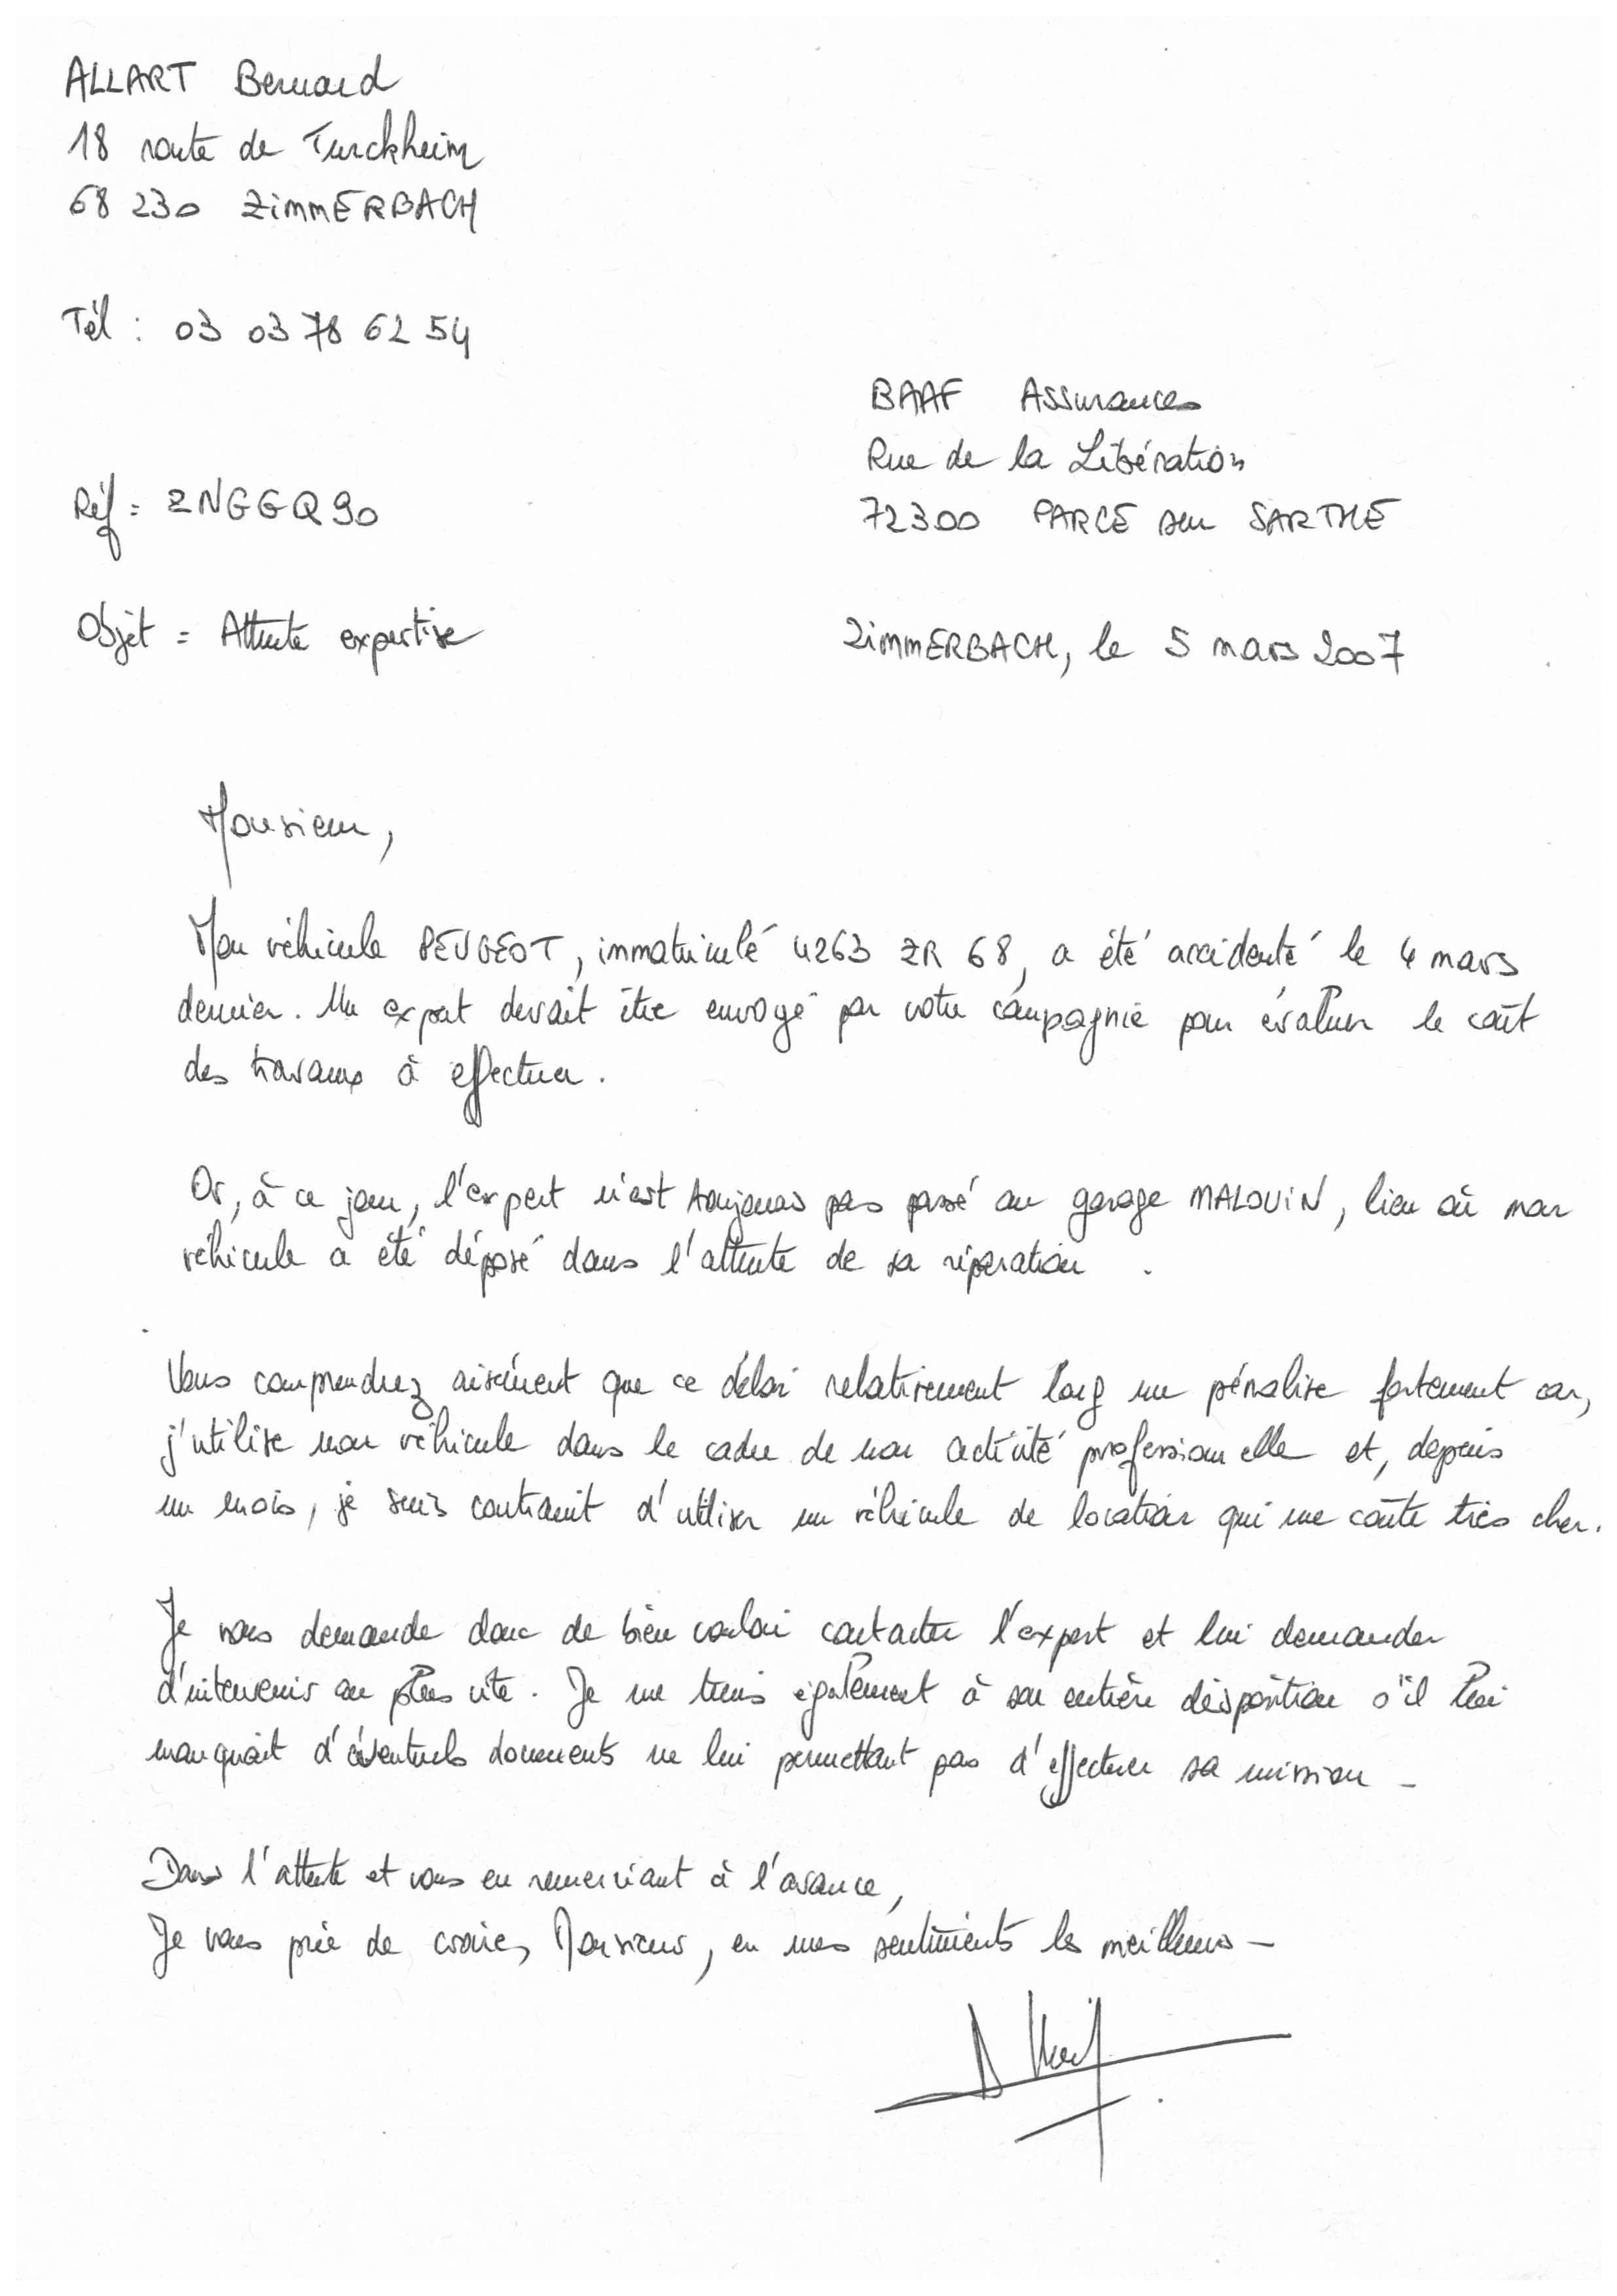 ALLART Bernard
18 route de Turckheim
68 230 ZimmERBACH
Tél : 03 03 78 62 54
BAAF Assurances
Rue de la Libération
72300 PARCE sur SARTHE
Réf = ZNGGQ90
Objet = Attente expertise
ZimmERBACH, le 5 mars 2007
Monsieur,
Mon véhicule PEUGEOT, immatriculé 4263 ZR 68, a été accidenté le 4 mars
dernier. Un expert devait être envoyé par votre compagnie pour évaluer le coût
des travaux à effectuer.
Or, à ce jour, l'expert n'est toujours pas passé au garage MALOUIN, lieu où mon
véhicule a été déposé dans l'attente de sa réparation.
Vous comprendrez aisément que ce délai relativement long me pénalise fortement car,
j'utilise mon véhicule dans le cadre de mon activité professionnelle et, depuis
un mois, je suis contraint d'utiliser un véhicule de location qui me coûte très cher.
Je vous demande donc de bien vouloir contacter l'expert et lui demander
d'intervenir au plus vite. Je me tiens également à son entière disposition s'il lui
manquait d'éventuels documents ne lui permettant pas d'effectuer sa mission -
Dans l'attente et vous en remerciant à l'avance,
Je vous prie de croire, Monsieur, en mes sentiments les meilleurs -